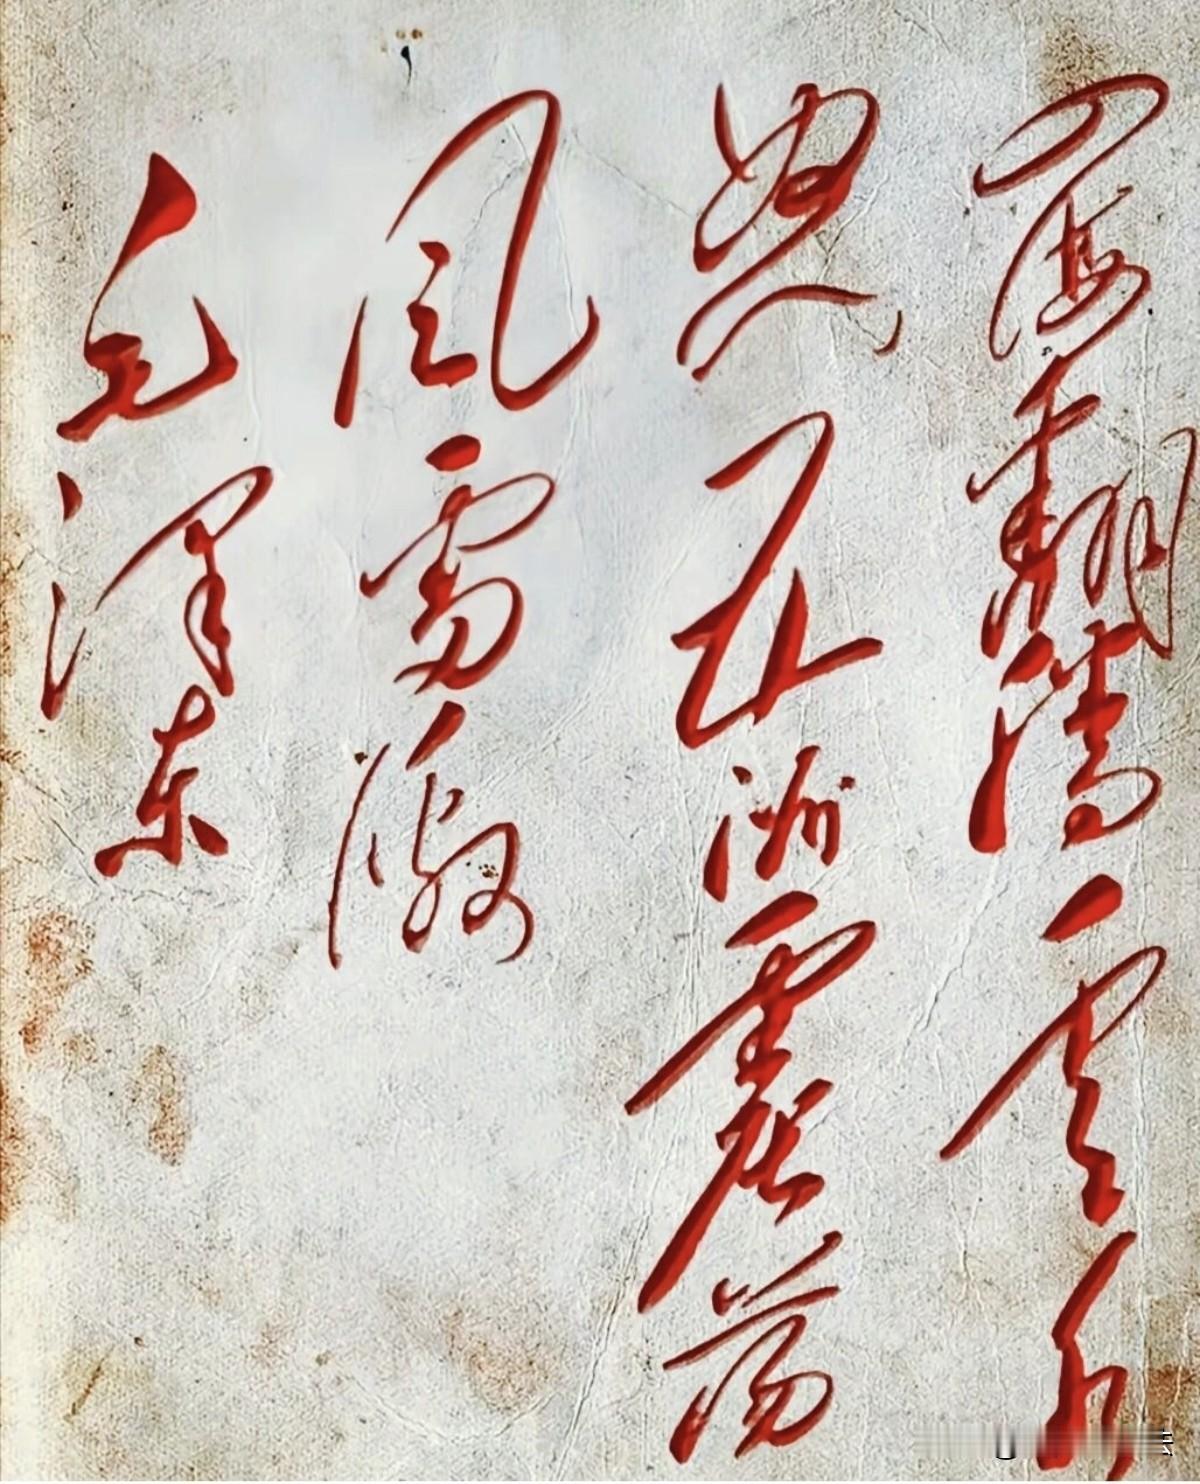 四海翻腾云水
怒五洲震荡
风雷激
毛泽东